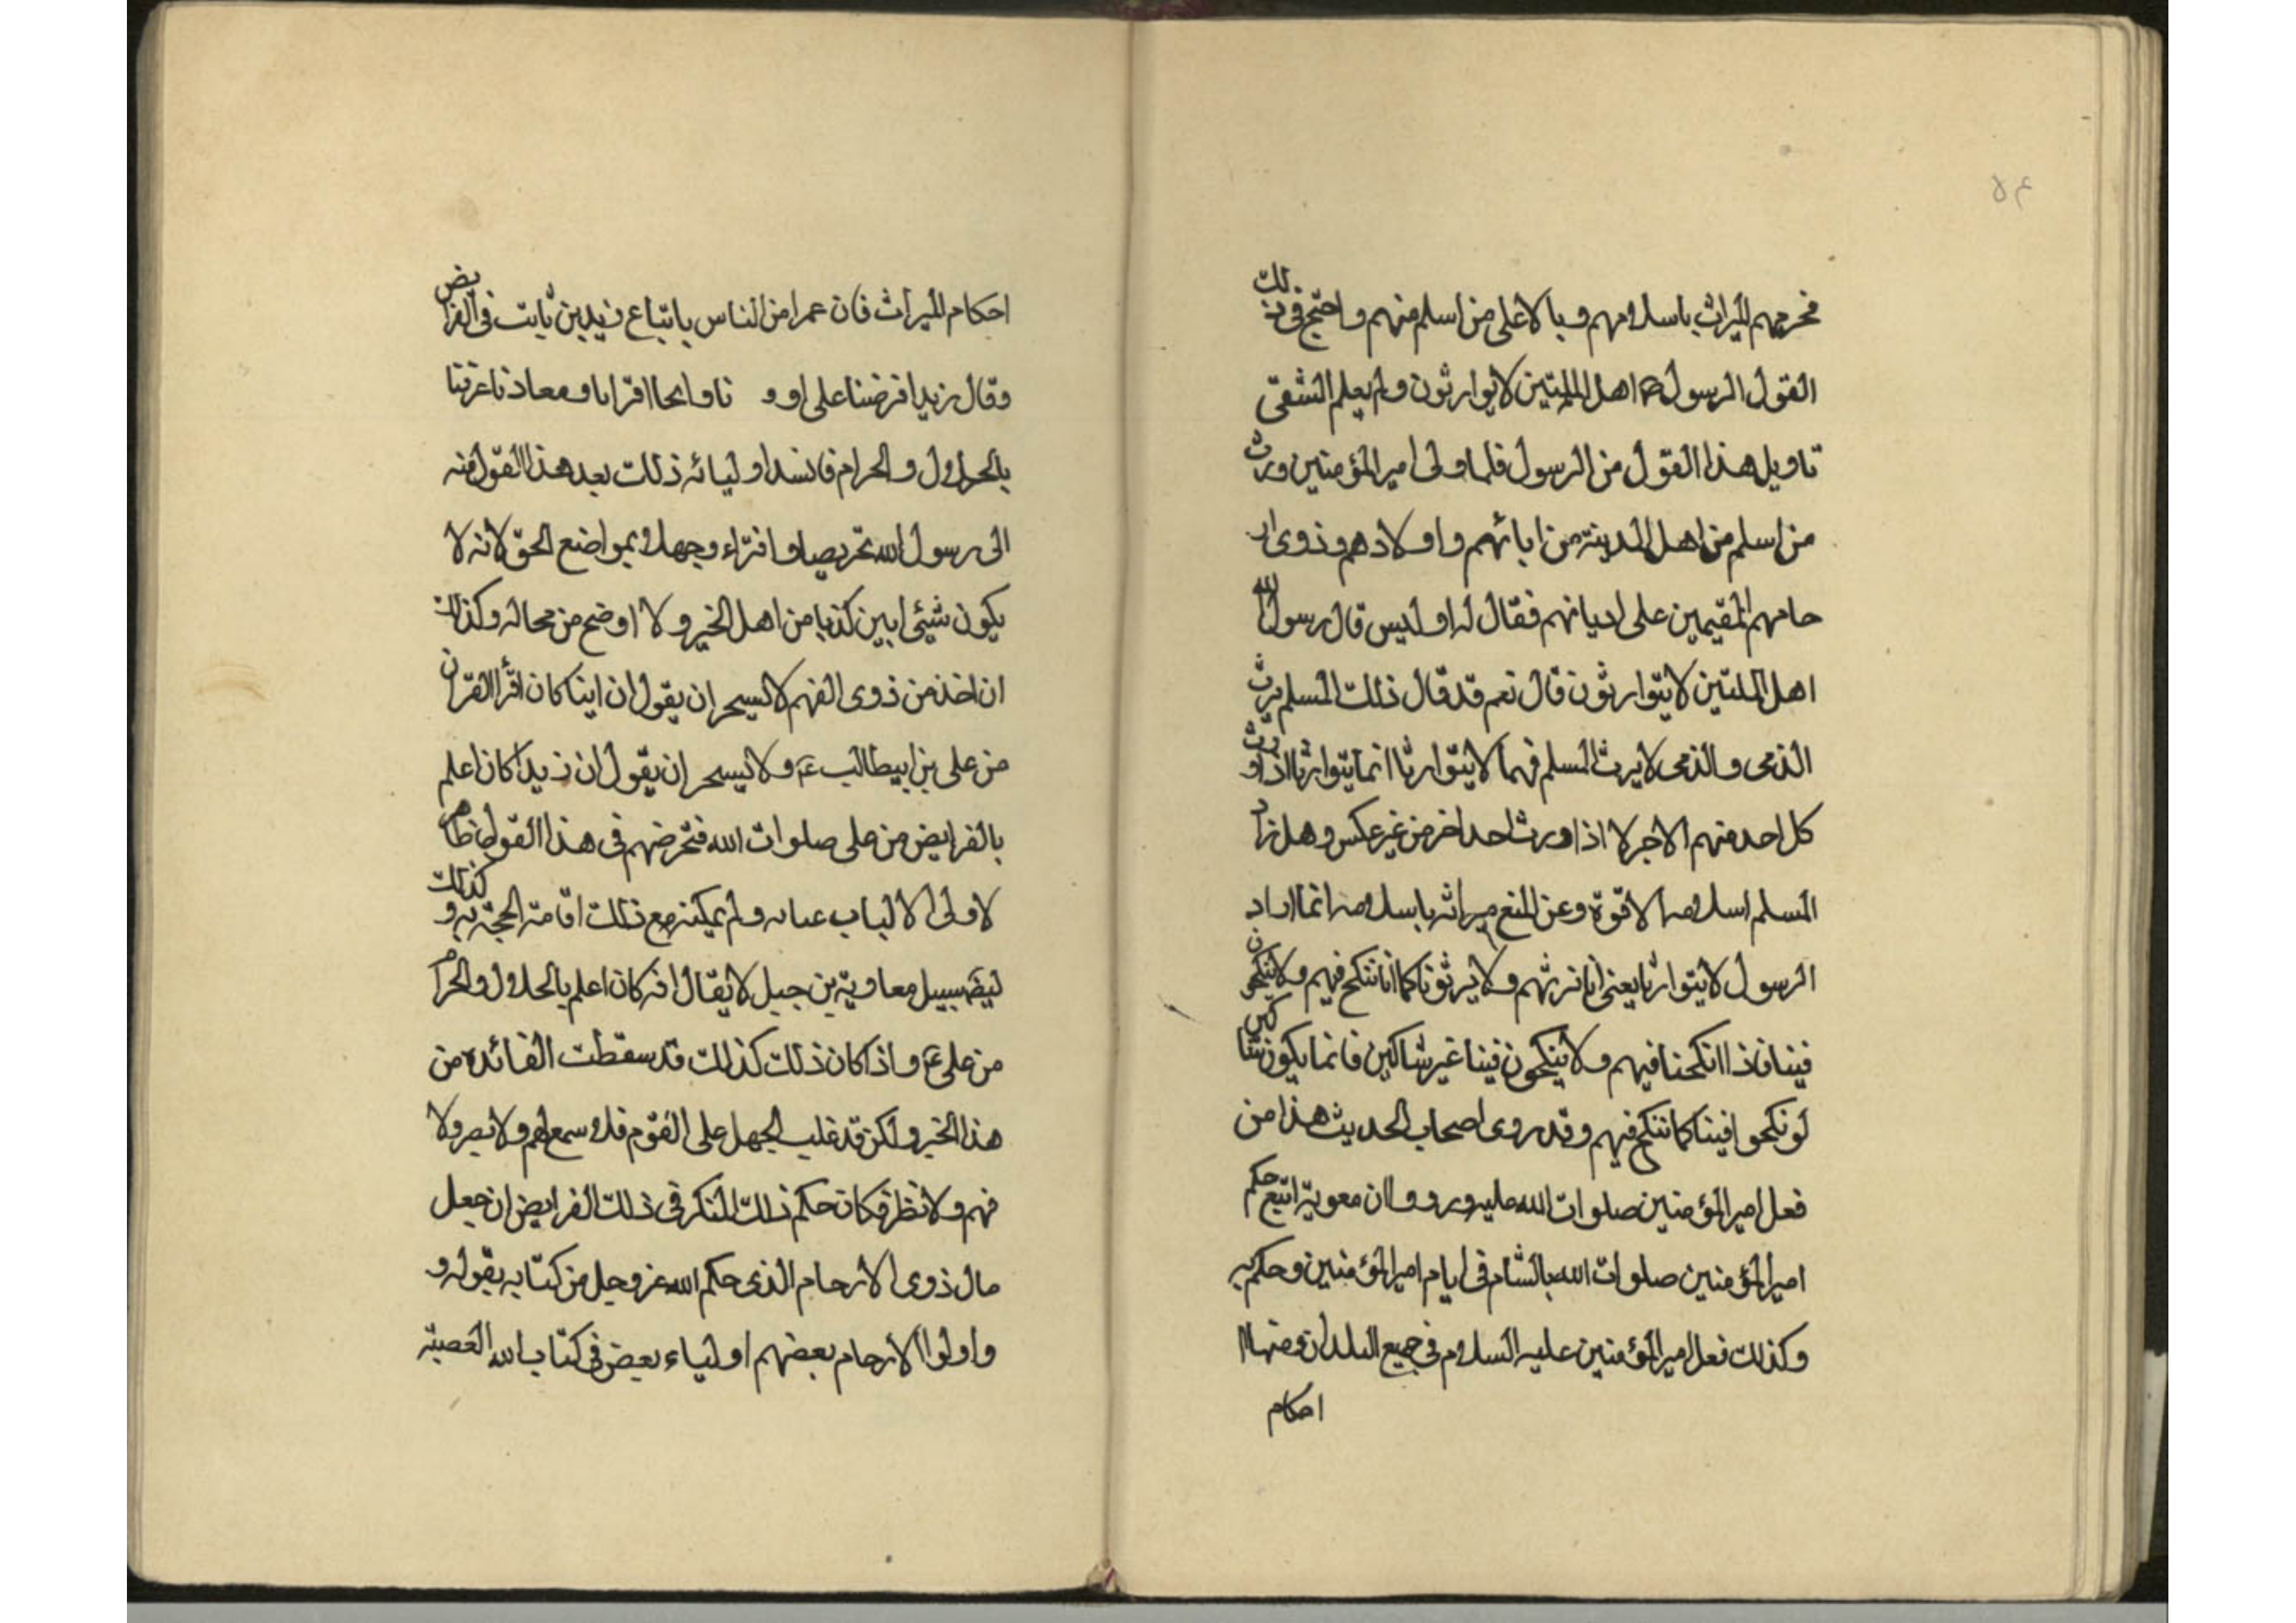 ٤٥
فحرمهم الميراث باسلامهم وبالا على من اسلم منهم واحتج فى ذلك
القول الرسول ص اهل الملتين لا يوارثون ولم يعلم الشقى
تاويل هذا القول من الرسول فلما ولى امير المؤمنين ورث
من اسلم من اهل المدينة من ابائهم واولادهم وذوى ار
حامهم المقيمين على اديانهم فقال له اوليس قال رسول الله
اهل الملتين لا يتوارثون قال نعم قد قال ذلك المسلم يرث
الذمى والذمى لا يرث المسلم فهما لا يتوارثا انما يتوارثا اذا ورث
كل احد منهم الاخر لا اذا ورث احد اخر من غير عكس وهل زاد
المسلم اسلامه الا قوة وعن المنع ميراثه باسلامه انما اراد
الرسول لا يتوارثا يعنى انا نرثهم ولا يرثونا كما انا ننكح فيهم ولا ينكحون
فينا فاذا انكحنا فيهم ولا ينكحون فينا غير شاكين فانما يكون شاكين
لو نكحوا فينا كما ننكح فيهم وقد روى اصحاب الحديث هذا من
فعل امير المؤمنين صلوات الله عليه ورووا ان معوية اتبع حكم
امير المؤمنين صلوات الله بالشام فى ايام امير المؤمنين وحكم به
وكذلك فعل امير المؤمنين عليه السلام فى جميع البلدان ومنها
احكام
احكام الميراث فان عمر امن الناس باتباع زيد بن ثابت فى الفرايض
وقال زيد افرضنا على او و ناوا افرانا ومعاذنا عرفنا
بالحلال والحرام فاسند اوليائه ذلك بعد هذا القول منه
الى رسول الله تخريصا وافتراء وجهلا بمواضع الحق لانه لا
يكون شيئى ابين كذبا من اهل الخبر ولا اوضح من محاله وكذلك
ان اخذ من ذوى الفهم لا ان يقول ان ابيا كان اقرأ القران
من على بن ابيطالب ع ولا ان يقول ان زيدا كان اعلم
بالفرايض من على صلوات الله فتحرضهم فى هذا القول ظاهر
لاولى الالباب ولم يمكنه مع ذلك اقامة الحجة به وكذلك
سبيل معاوية بن جبل لا يقال انه كان اعلم بالحلال والحرام
من على ع واذا كان ذلك كذلك قد سقطت الفائدة من
هذا الخبر ولكن قد غلب الجهل على القوم فلا سمع لهم ولا بصر ولا
فهم ولا نظر فكان حكم ذلك المنكر فى ذلك الفرايض ان جعل
مال ذوى الارحام الذى حكم الله عز وجل من كتابه بقوله و
واولوا الارحام بعضهم اولياء بعض فى كتاب الله العصبة